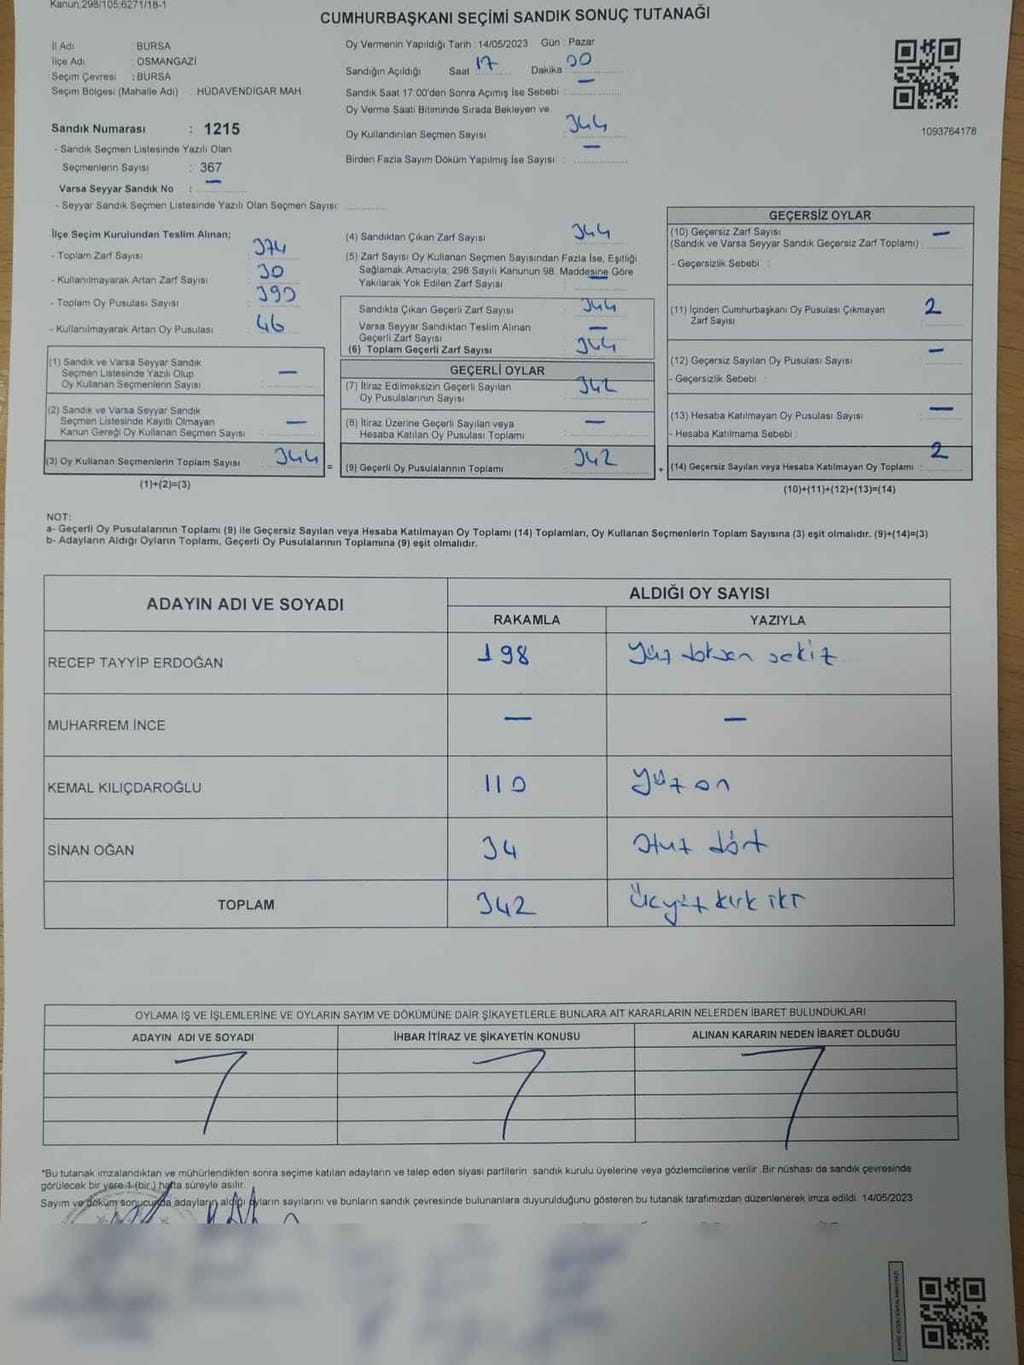 Kanun,298/105;6271/18-1
CUMHURBAŞKANI SEÇİMİ SANDIK SONUÇ TUTANAĞI
İl Adı : BURSA
İlçe Adı : OSMANGAZİ
Seçim Çevresi : BURSA
Seçim Bölgesi (Mahalle Adı) : HÜDAVENDİGAR MAH.
Sandık Numarası : 1215
- Sandık Seçmen Listesinde Yazılı Olan
Seçmenlerin Sayısı : 367
Varsa Seyyar Sandık No : —
- Seyyar Sandık Seçmen Listesinde Yazılı Olan Seçmen Sayısı:
Oy Vermenin Yapıldığı Tarih : 14/05/2023 Gün : Pazar
Sandığın Açıldığı Saat 17 Dakika 00
Sandık Saat 17:00'den Sonra Açımış İse Sebebi : —
Oy Verme Saati Bitiminde Sırada Bekleyen ve
Oy Kullandırılan Seçmen Sayısı : 344
Birden Fazla Sayım Döküm Yapılmış İse Sayısı : —
1093764178
İlçe Seçim Kurulundan Teslim Alınan;
- Toplam Zarf Sayısı : 374
- Kullanılmayarak Artan Zarf Sayısı : 30
- Toplam Oy Pusulası Sayısı : 390
- Kullanılmayarak Artan Oy Pusulası : 46
(1) Sandık ve Varsa Seyyar Sandık
Seçmen Listesinde Yazılı Olup
Oy Kullanan Seçmenlerin Sayısı : —
(2) Sandık ve Varsa Seyyar Sandık
Seçmen Listesinde Kayıtlı Olmayan
Kanun Gereği Oy Kullanan Seçmen Sayısı : —
(3) Oy Kullanan Seçmenlerin Toplam Sayısı : 344 =
(1)+(2)=(3)
(4) Sandıktan Çıkan Zarf Sayısı : 344
(5) Zarf Sayısı Oy Kullanan Seçmen Sayısından Fazla İse, Eşitliği
Sağlamak Amacıyla; 298 Sayılı Kanunun 98. Maddesine Göre
Yakılarak Yok Edilen Zarf Sayısı : —
Sandıkta Çıkan Geçerli Zarf Sayısı : 344
Varsa Seyyar Sandıktan Teslim Alınan
Geçerli Zarf Sayısı : —
(6) Toplam Geçerli Zarf Sayısı : 344
GEÇERLİ OYLAR
(7) İtiraz Edilmeksizin Geçerli Sayılan
Oy Pusulalarının Sayısı : 342
(8) İtiraz Üzerine Geçerli Sayılan veya
Hesaba Katılan Oy Pusulası Toplamı : —
(9) Geçerli Oy Pusulalarının Toplamı : 342 +
GEÇERSİZ OYLAR
(10) Geçersiz Zarf Sayısı
(Sandık ve Varsa Seyyar Sandık Geçersiz Zarf Toplamı) : —
- Geçersizlik Sebebi :
(11) İçinden Cumhurbaşkanı Oy Pusulası Çıkmayan
Zarf Sayısı : 2
(12) Geçersiz Sayılan Oy Pusulası Sayısı : —
- Geçersizlik Sebebi :
(13) Hesaba Katılmayan Oy Pusulası Sayısı : —
- Hesaba Katılmama Sebebi :
(14) Geçersiz Sayılan veya Hesaba Katılmayan Oy Toplamı : 2
(10)+(11)+(12)+(13)=(14)
NOT:
a- Geçerli Oy Pusulalarının Toplamı (9) ile Geçersiz Sayılan veya Hesaba Katılmayan Oy Toplamı (14) Toplamları, Oy Kullanan Seçmenlerin Toplam Sayısına (3) eşit olmalıdır. (9)+(14)=(3)
b- Adayların Aldığı Oyların Toplamı, Geçerli Oy Pusulalarının Toplamına (9) eşit olmalıdır.
ADAYIN ADI VE SOYADI ALDIĞI OY SAYISI
RAKAMLA YAZIYLA
RECEP TAYYİP ERDOĞAN 198 yüz doksan sekiz
MUHARREM İNCE — —
KEMAL KILIÇDAROĞLU 110 yüz on
SİNAN OĞAN 34 otuz dört
TOPLAM 342 Üçyüz kırk iki
OYLAMA İŞ VE İŞLEMLERİNE VE OYLARIN SAYIM VE DÖKÜMÜNE DAİR ŞİKAYETLERLE BUNLARA AİT KARARLARIN NELERDEN İBARET BULUNDUKLARI
ADAYIN ADI VE SOYADI İHBAR İTİRAZ VE ŞİKAYETİN KONUSU ALINAN KARARIN NEDEN İBARET OLDUĞU
*Bu tutanak imzalandıktan ve mühürlendikten sonra seçime katılan adayların ve talep eden siyasi partilerin sandık kurulu üyelerine veya gözlemcilerine verilir. Bir nüshası da sandık çevresinde
görülecek bir yere 1 (bir) hafta süreyle asılır.
Sayım ve döküm sonucunda adayların aldığı oyların sayılarını ve bunların sandık çevresinde bulunanlara duyurulduğunu gösteren bu tutanak tarafımızdan düzenlenerek imza edildi. 14/05/2023